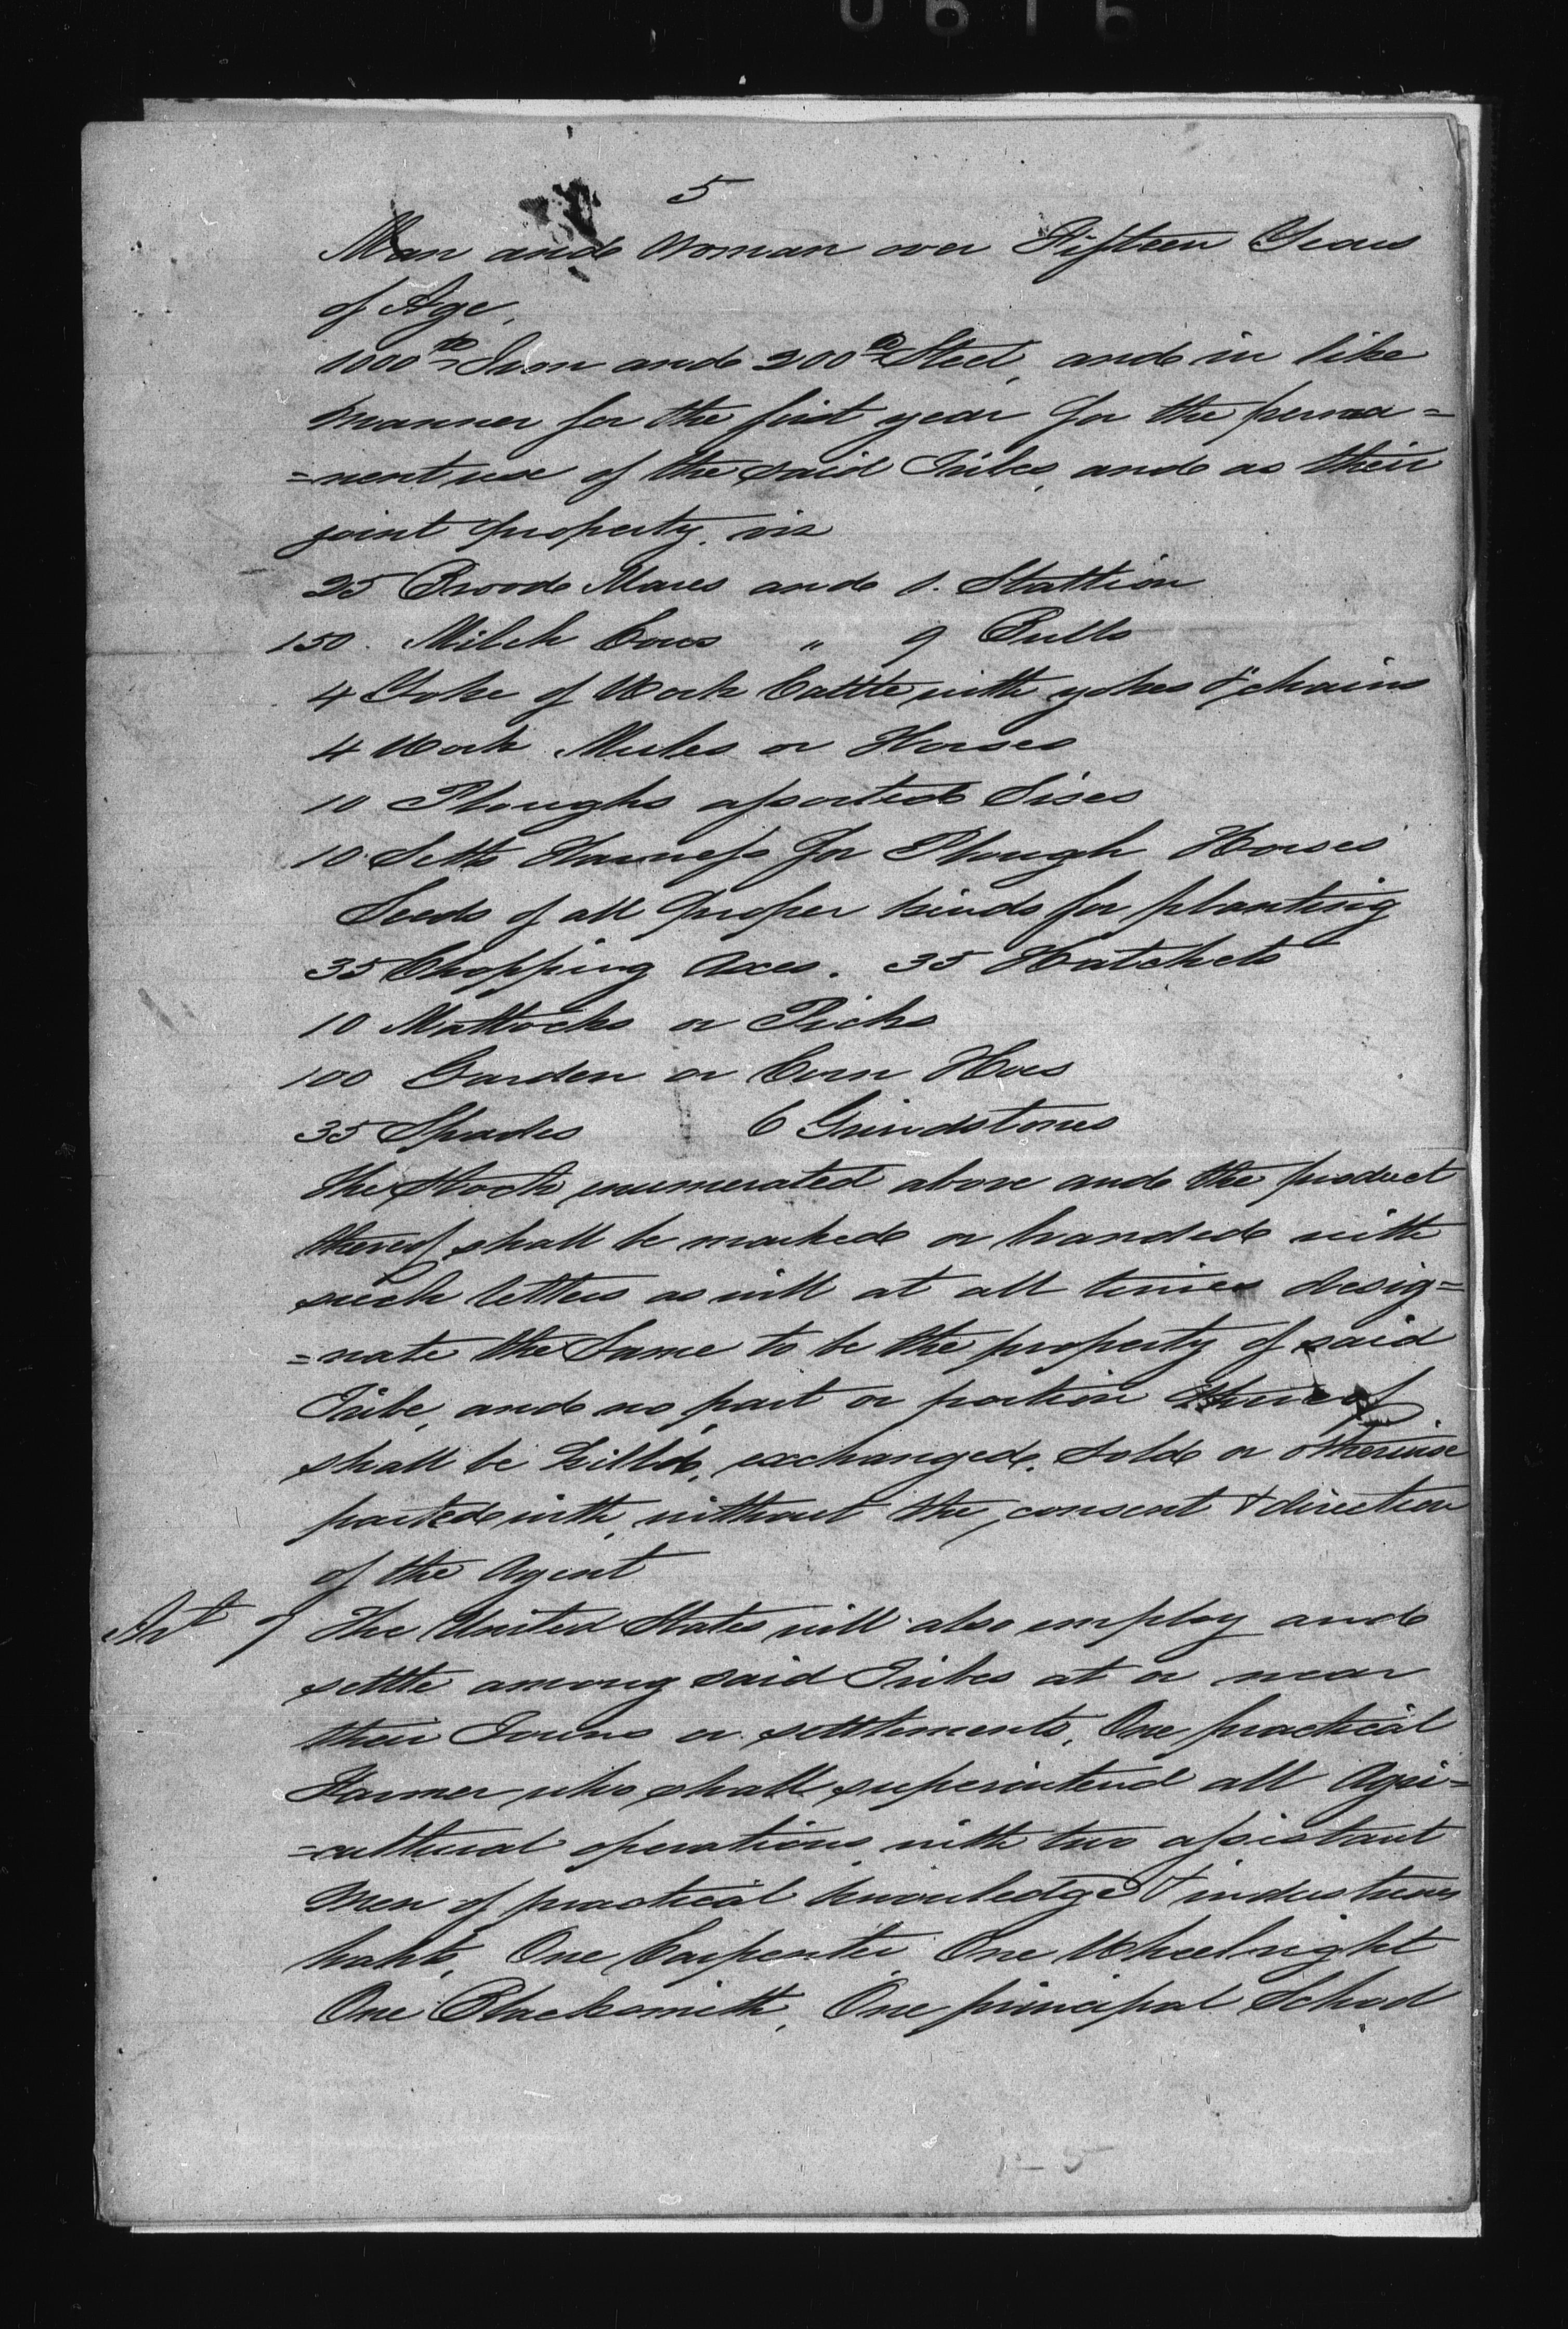 5
Man and Woman over Fifteen Years
of Age,
1000 lb Iron and 200 lb Steel, and in like
manner for the first year for the perma=
=nent use of the said Tribes, and as their
joint property. viz
25 Brood Mares and 1. Stattion
150. Milch Cows " 9 Bulls
4 Yoke of Work Cattle with yokes & chains
4 Work Mules or Horses
10 Ploughs assorted Sises
10 Setts Harness for Plough Horses
Seeds of all proper kinds for planting
35 Chopping Axes. 35 Hatchets
10 Mattocks or Picks
100 Garden or Corn Hoes
35 Spades 6 Grindstones
The Stock enumerated above and the product
thereof shall be marked or branded with
such letters as will at all times desig=
=nate the Same to be the property of said
Tribe, and no part or portion thereof
shall be Killed, exchanged, Sold or otherwise
parted with, without the consent & direction
of the Agent
Art 7 The United States will also employ and
settle among said Tribes at or near
their Towns or settlements, One practical
Farmer who shall superintend all Agri=
=cultural operations with two assistant
Men of practical knowledge & industrious
habits, One Carpenter One Wheelright
One Blacksmith, One principal School